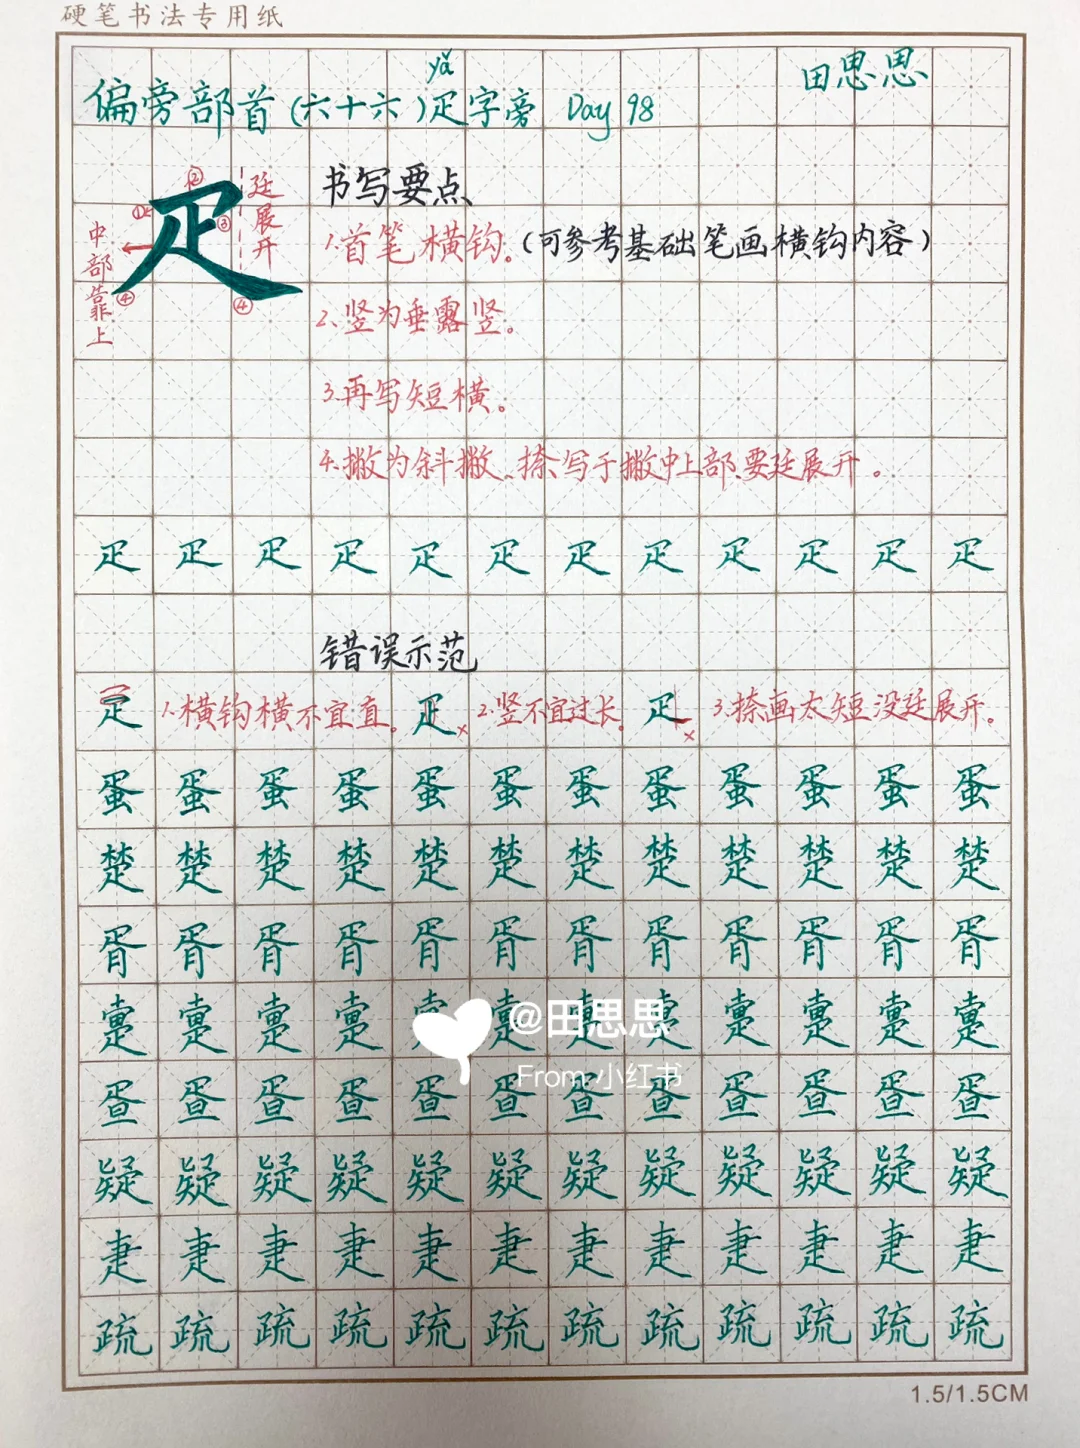 硬笔书法专用纸
yǎ
田思思
偏旁部首(六十六)疋字旁 Day 98
疋
① ② ③ ④ ④
廷展开
中部靠上
书写要点
1.首笔横钩。(可参考基础笔画横钩内容)
2.竖为垂露竖。
3.再写短横。
4.撇为斜撇、捺写于撇中上部、要廷展开。
疋 疋 疋 疋 疋 疋 疋 疋 疋 疋 疋 疋
错误示范
疋 1.横钩横不宜直。 疋× 2.竖不宜过长。 疋× 3.捺画太短没廷展开。
蛋 蛋 蛋 蛋 蛋 蛋 蛋 蛋 蛋 蛋 蛋 蛋
楚 楚 楚 楚 楚 楚 楚 楚 楚 楚 楚 楚
胥 胥 胥 胥 胥 胥 胥 胥 胥 胥 胥 胥
疐 疐 疐 疐 疐 疐 疐 疐 疐 疐 疐
@田思思
From 小红书
疍 疍 疍 疍 疍 疍 疍 疍 疍 疍 疍 疍
疑 疑 疑 疑 疑 疑 疑 疑 疑 疑 疑 疑
疌 疌 疌 疌 疌 疌 疌 疌 疌 疌 疌 疌
疏 疏 疏 疏 疏 疏 疏 疏 疏 疏 疏 疏
1.5/1.5CM